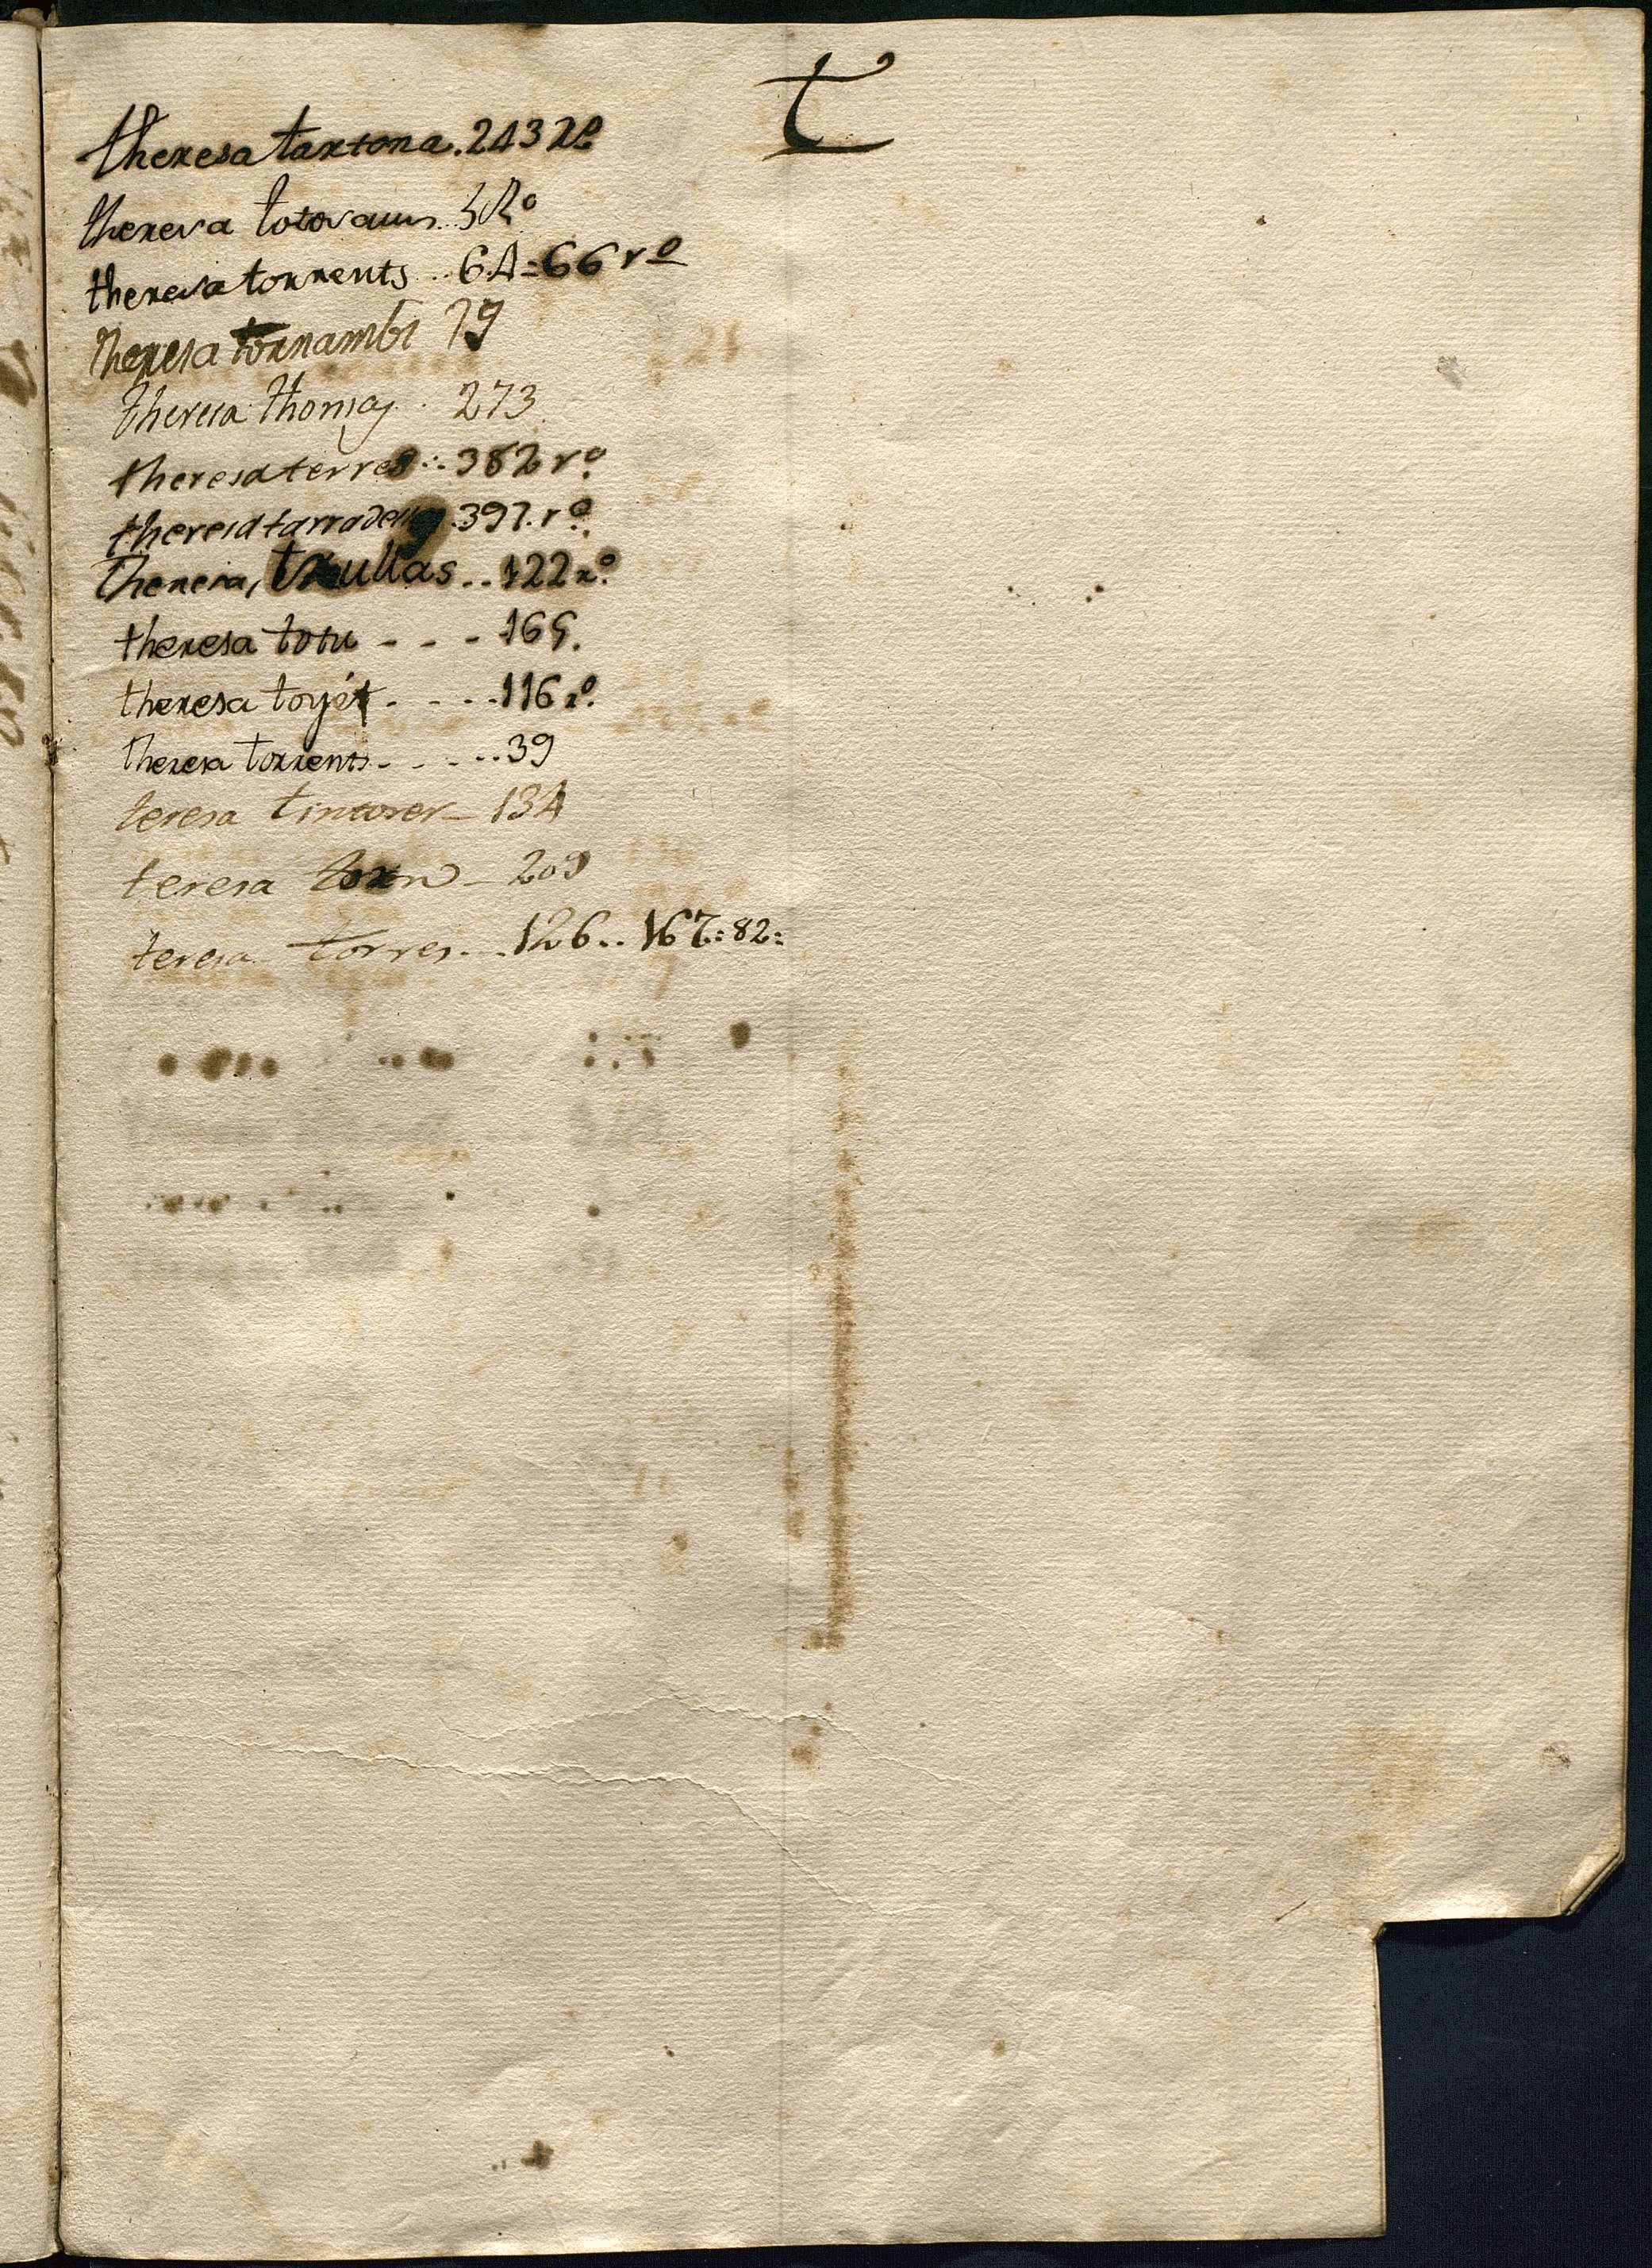 T
theresa tartona . 243 Rº
theresa totosaus .. 5 Rº
theresa torrents .. 64 = 66 rº
theresa tornambi 79
theresa thomas . 273
theresa terres .. 382 rº
theresa tarradellas . 397. rº
theresa, trullas .. 122 rº
theresa totu - - - 165.
theresa toyét - - - 116 rº
theresa torrents - - - .. 39
teresa tintorer - 134
teresa - 209
teresa torres - - 126 .. 167 = 82 =